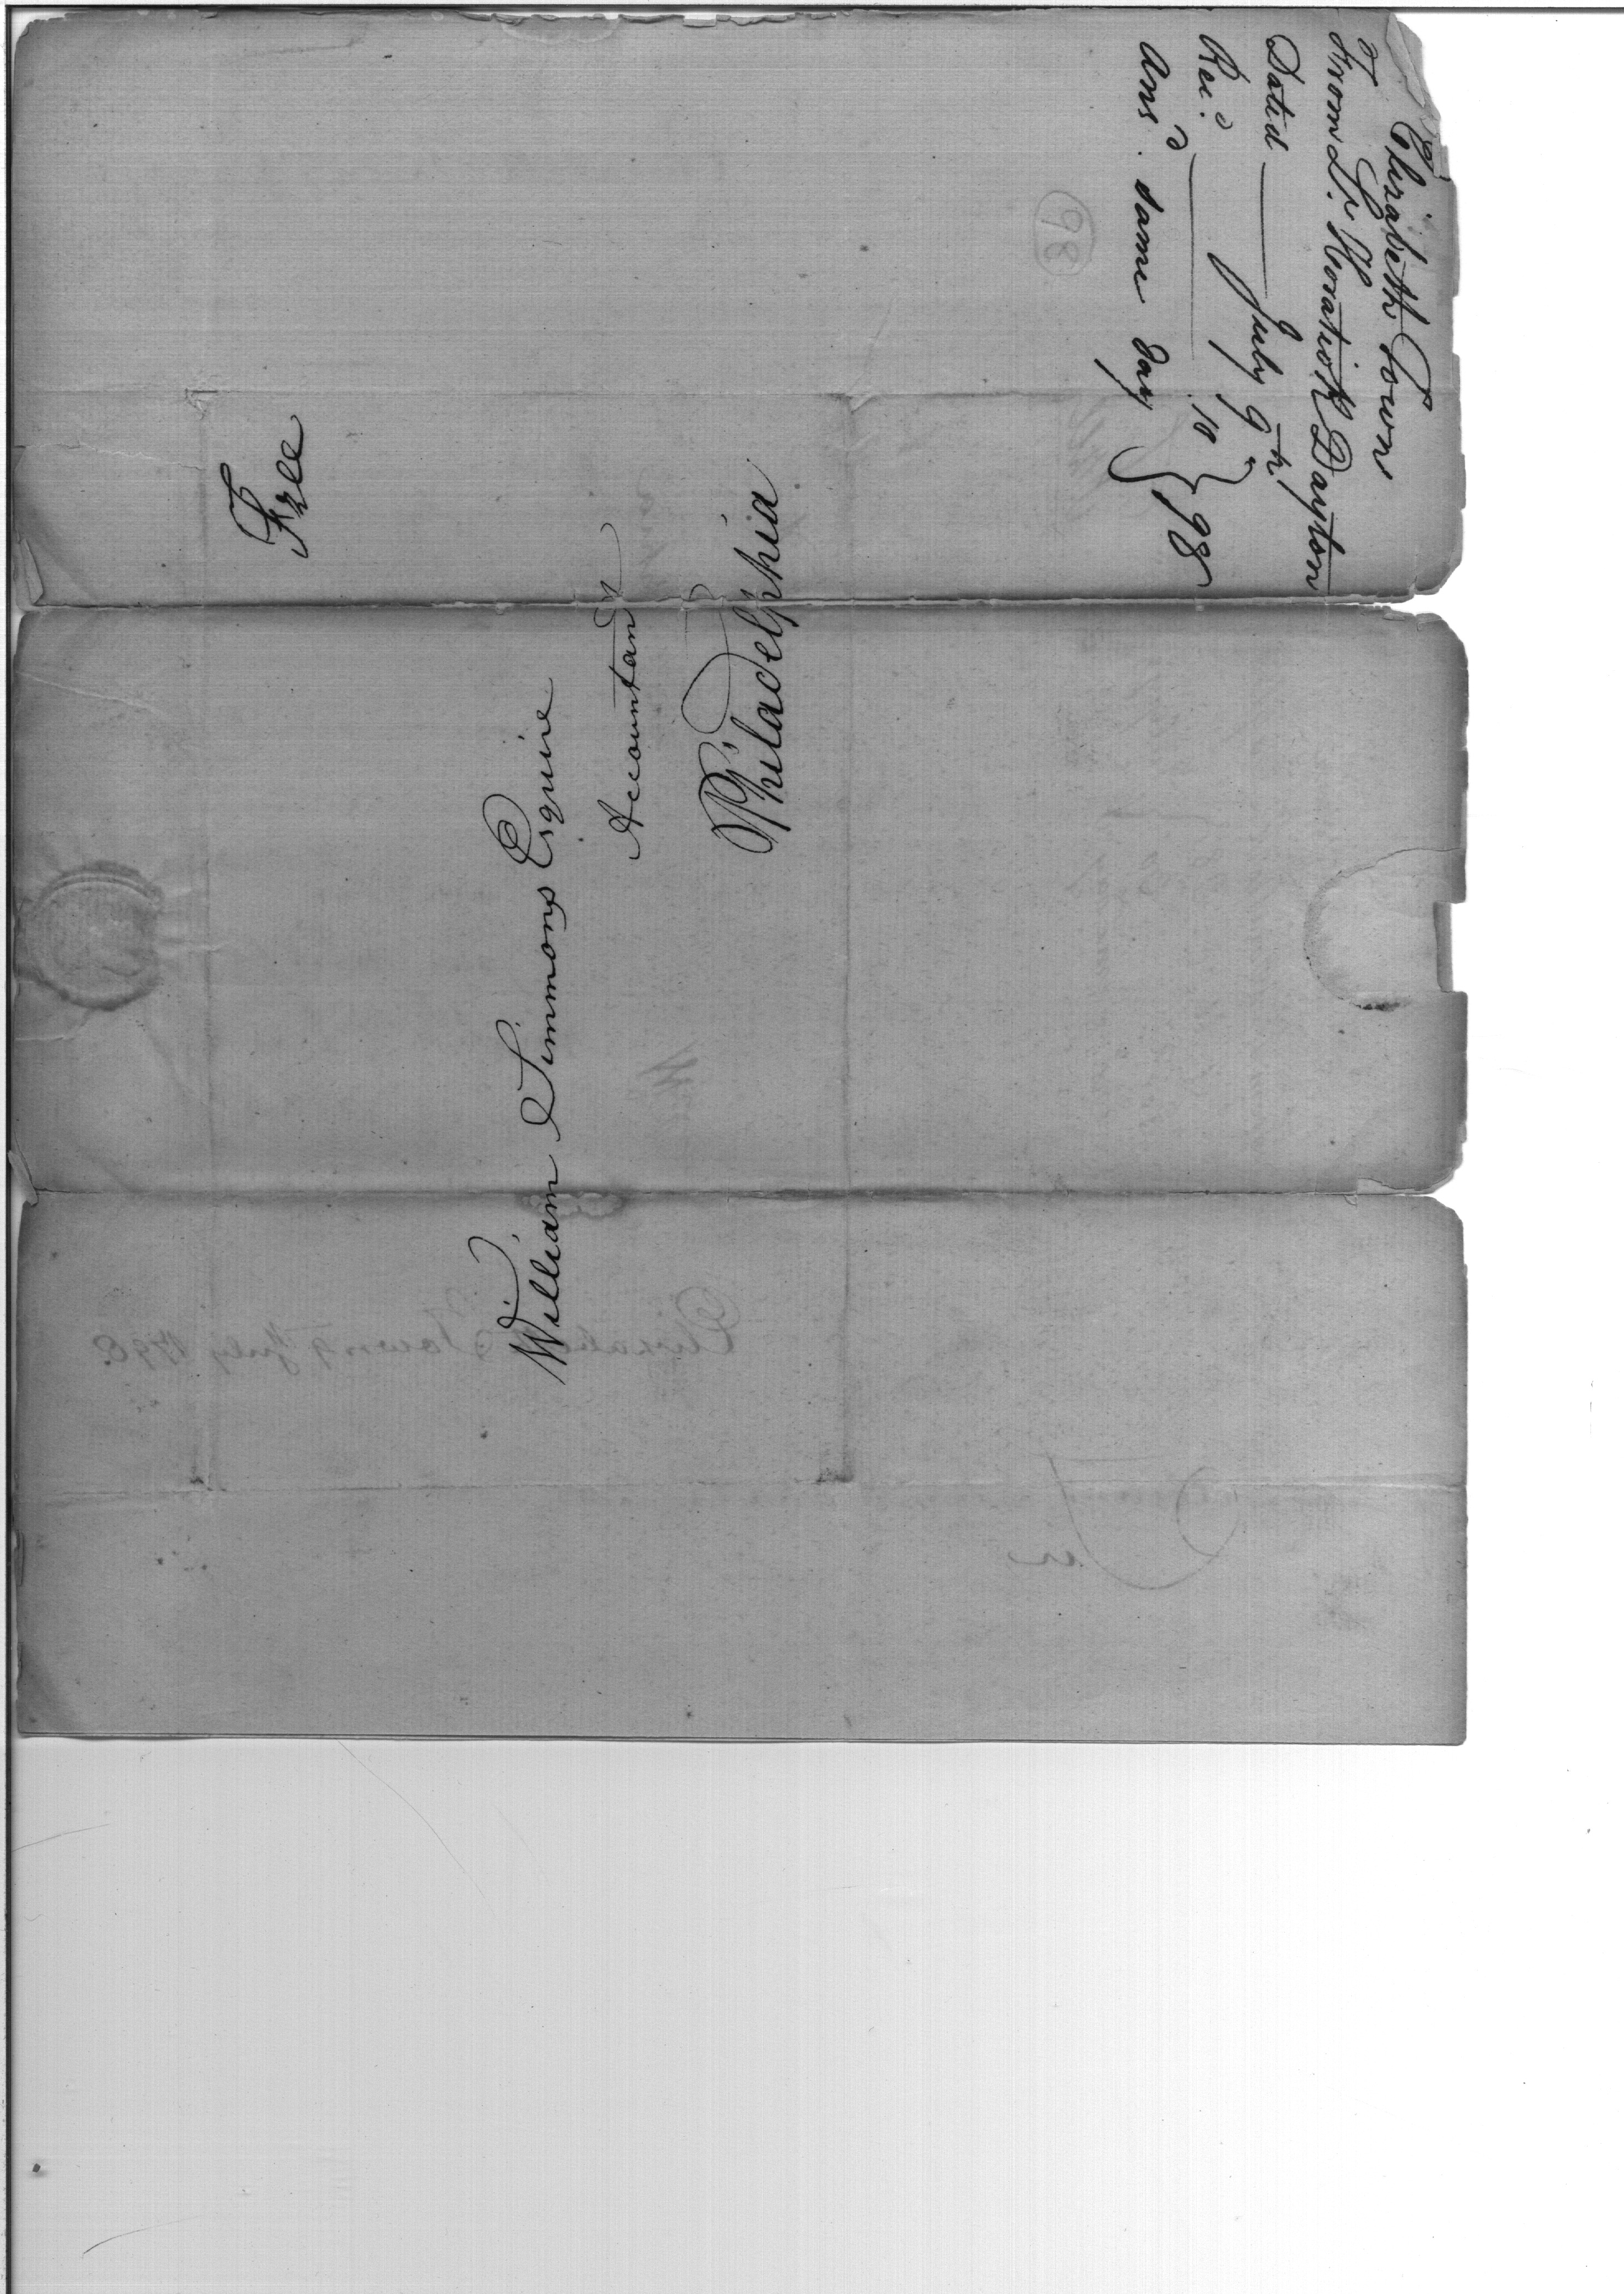 Elizabeth Town
From Lt. Horatio R Dayton
Dated — July 9th
Rec.d — 10
98
Ans.d same day
98
Free
William Simmons Esquire
Accountant
Philadelphia
Elizabeth Town 9 July 1798